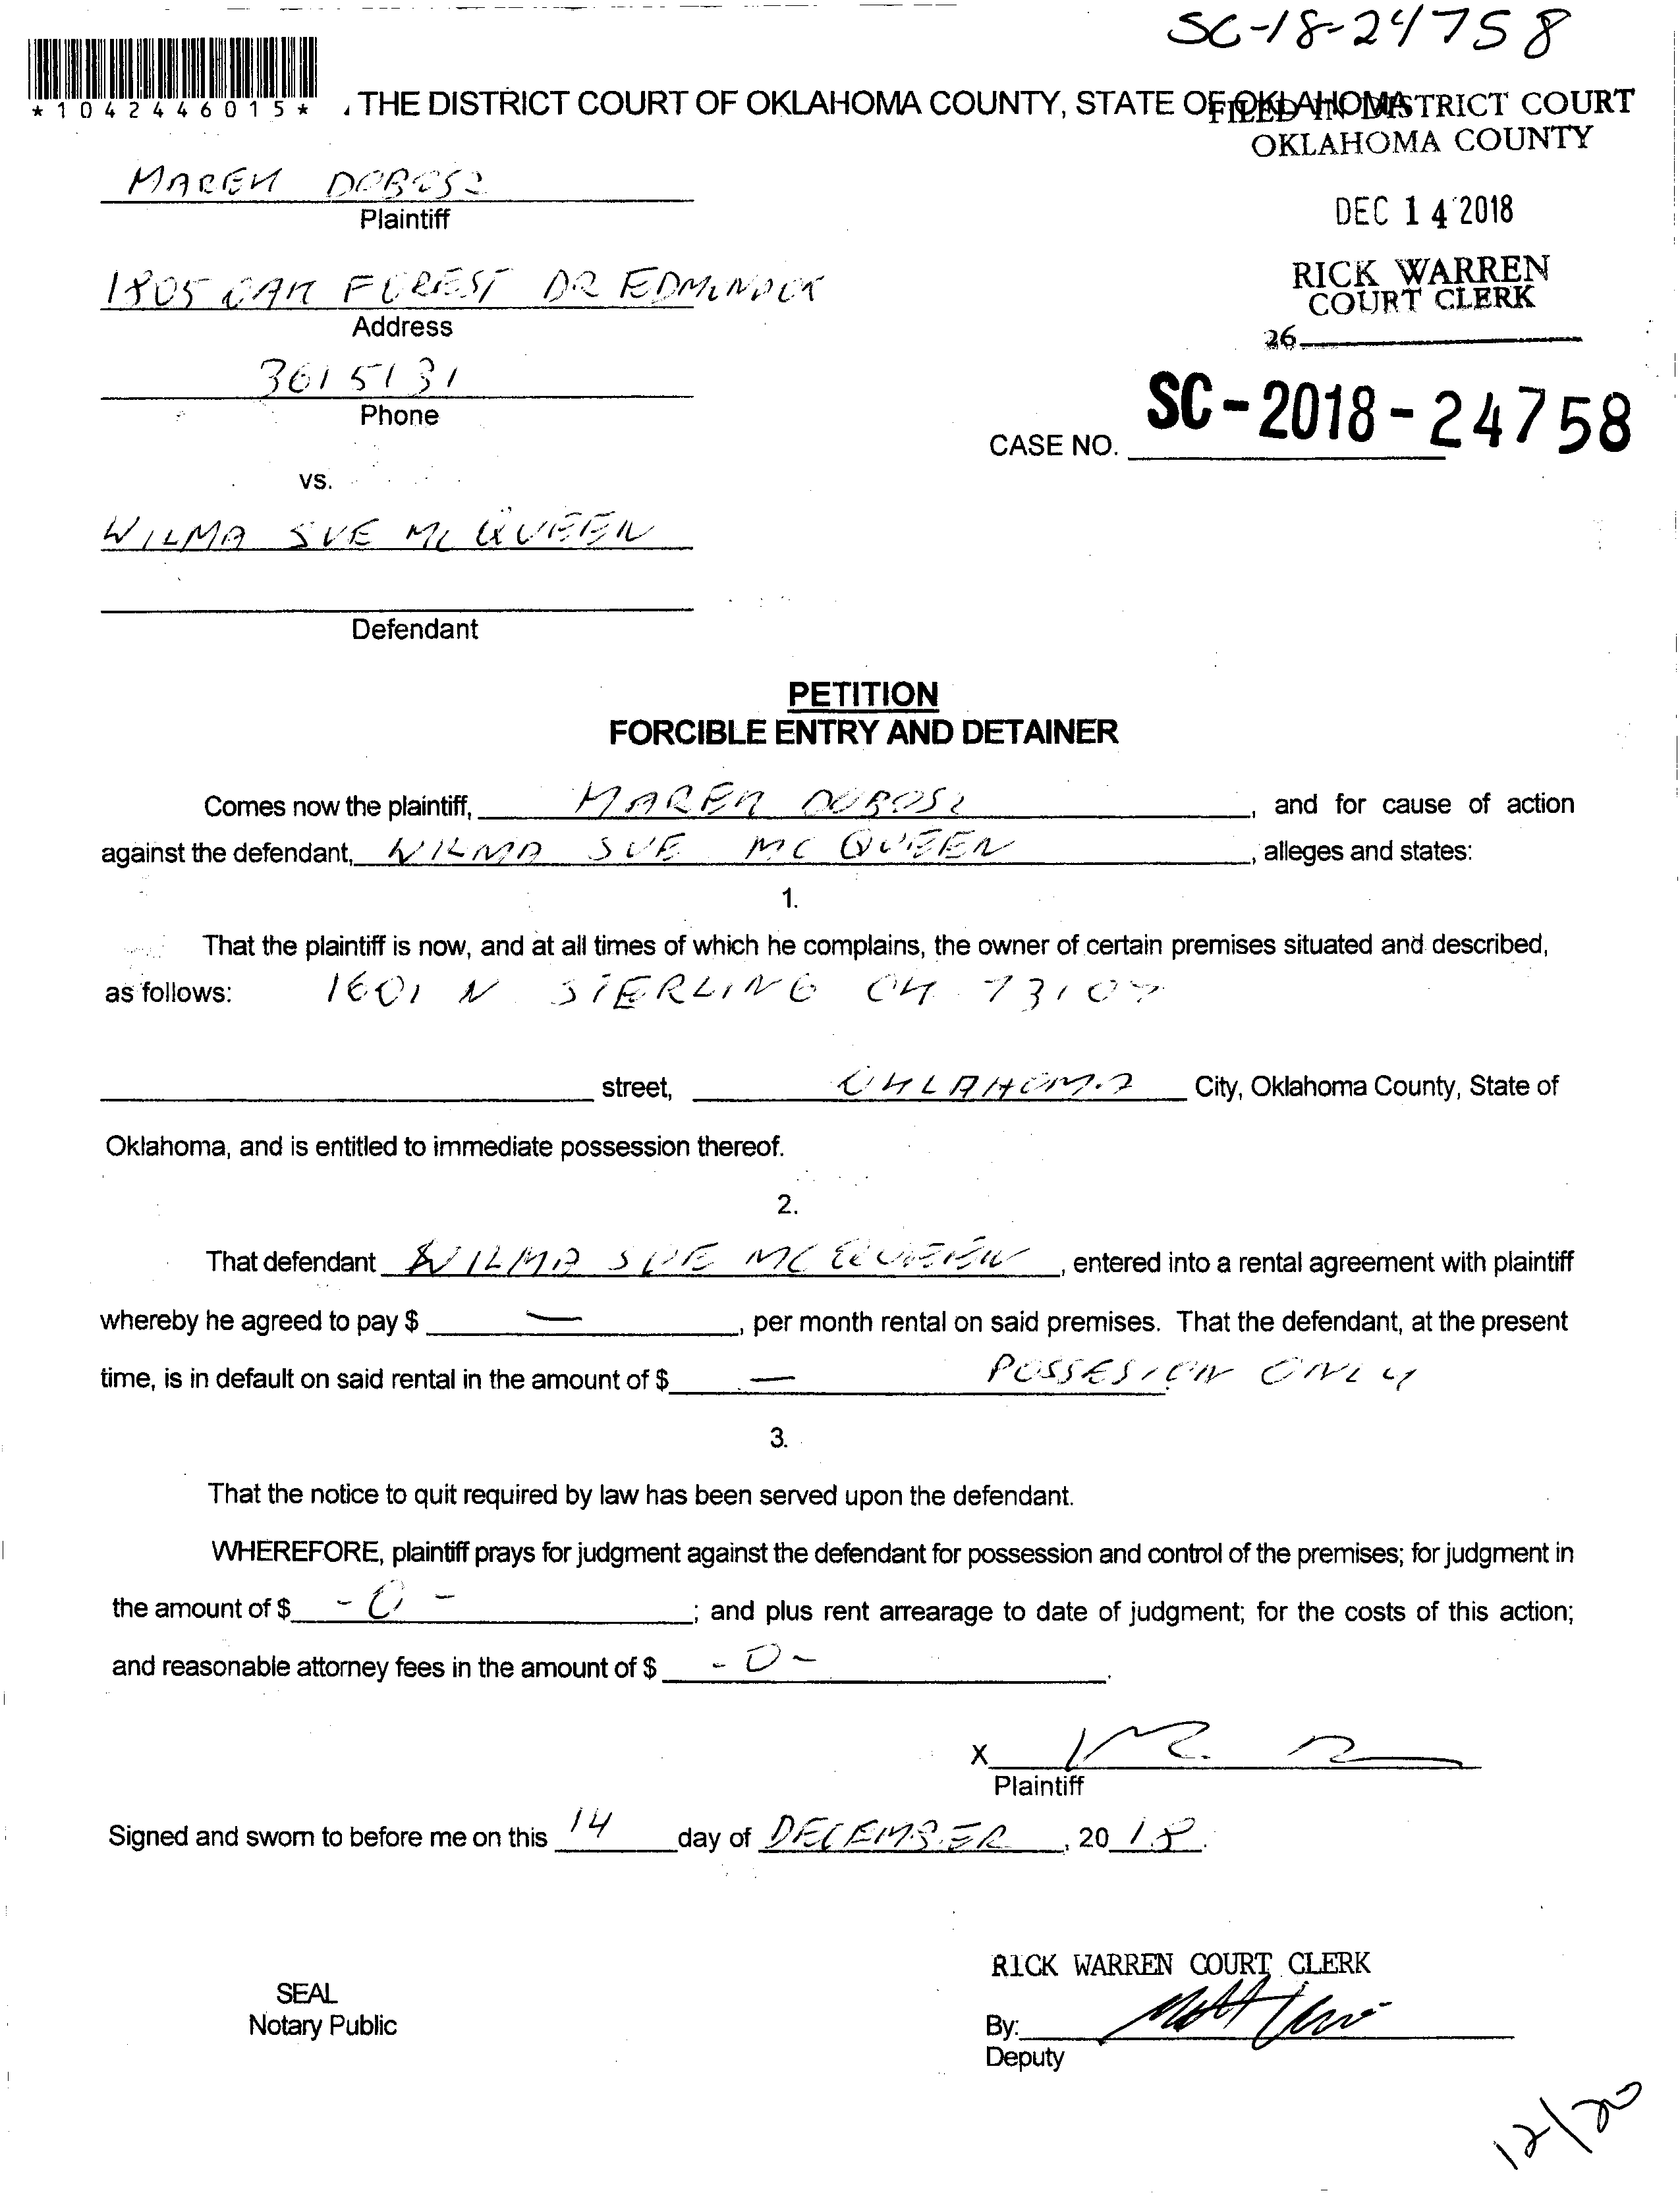 SC-18-24758
*1042446015*
THE DISTRICT COURT OF OKLAHOMA COUNTY, STATE OF OKLAHOMA
FILED IN DISTRICT COURT
OKLAHOMA COUNTY
MAREK DOBOSZ
Plaintiff
DEC 14 2018
1805 OAK FOREST DR EDMOND OK
RICK WARREN
COURT CLERK
Address
26
3615131
Phone
SC-2018-24758
CASE NO.
vs.
WILMA SUE MC QUEEN
Defendant
PETITION
FORCIBLE ENTRY AND DETAINER
Comes now the plaintiff, MAREK DOBOSZ, and for cause of action
against the defendant, WILMA SUE MC QUEEN, alleges and states:
1.
That the plaintiff is now, and at all times of which he complains, the owner of certain premises situated and described,
as follows: 1601 N STERLING OK
street, OKLAHOMA City, Oklahoma County, State of
Oklahoma, and is entitled to immediate possession thereof.
2.
That defendant WILMA SUE MC QUEEN, entered into a rental agreement with plaintiff
whereby he agreed to pay $ —, per month rental on said premises. That the defendant, at the present
time, is in default on said rental in the amount of $ — POSSESION ONLY
3.
That the notice to quit required by law has been served upon the defendant.
WHEREFORE, plaintiff prays for judgment against the defendant for possession and control of the premises; for judgment in
the amount of $ -0-; and plus rent arrearage to date of judgment; for the costs of this action;
and reasonable attorney fees in the amount of $ -0-.
X
Plaintiff
Signed and sworn to before me on this 14 day of DECEMBER, 2018.
RICK WARREN COURT CLERK
SEAL
Notary Public
By:
Deputy
12/20